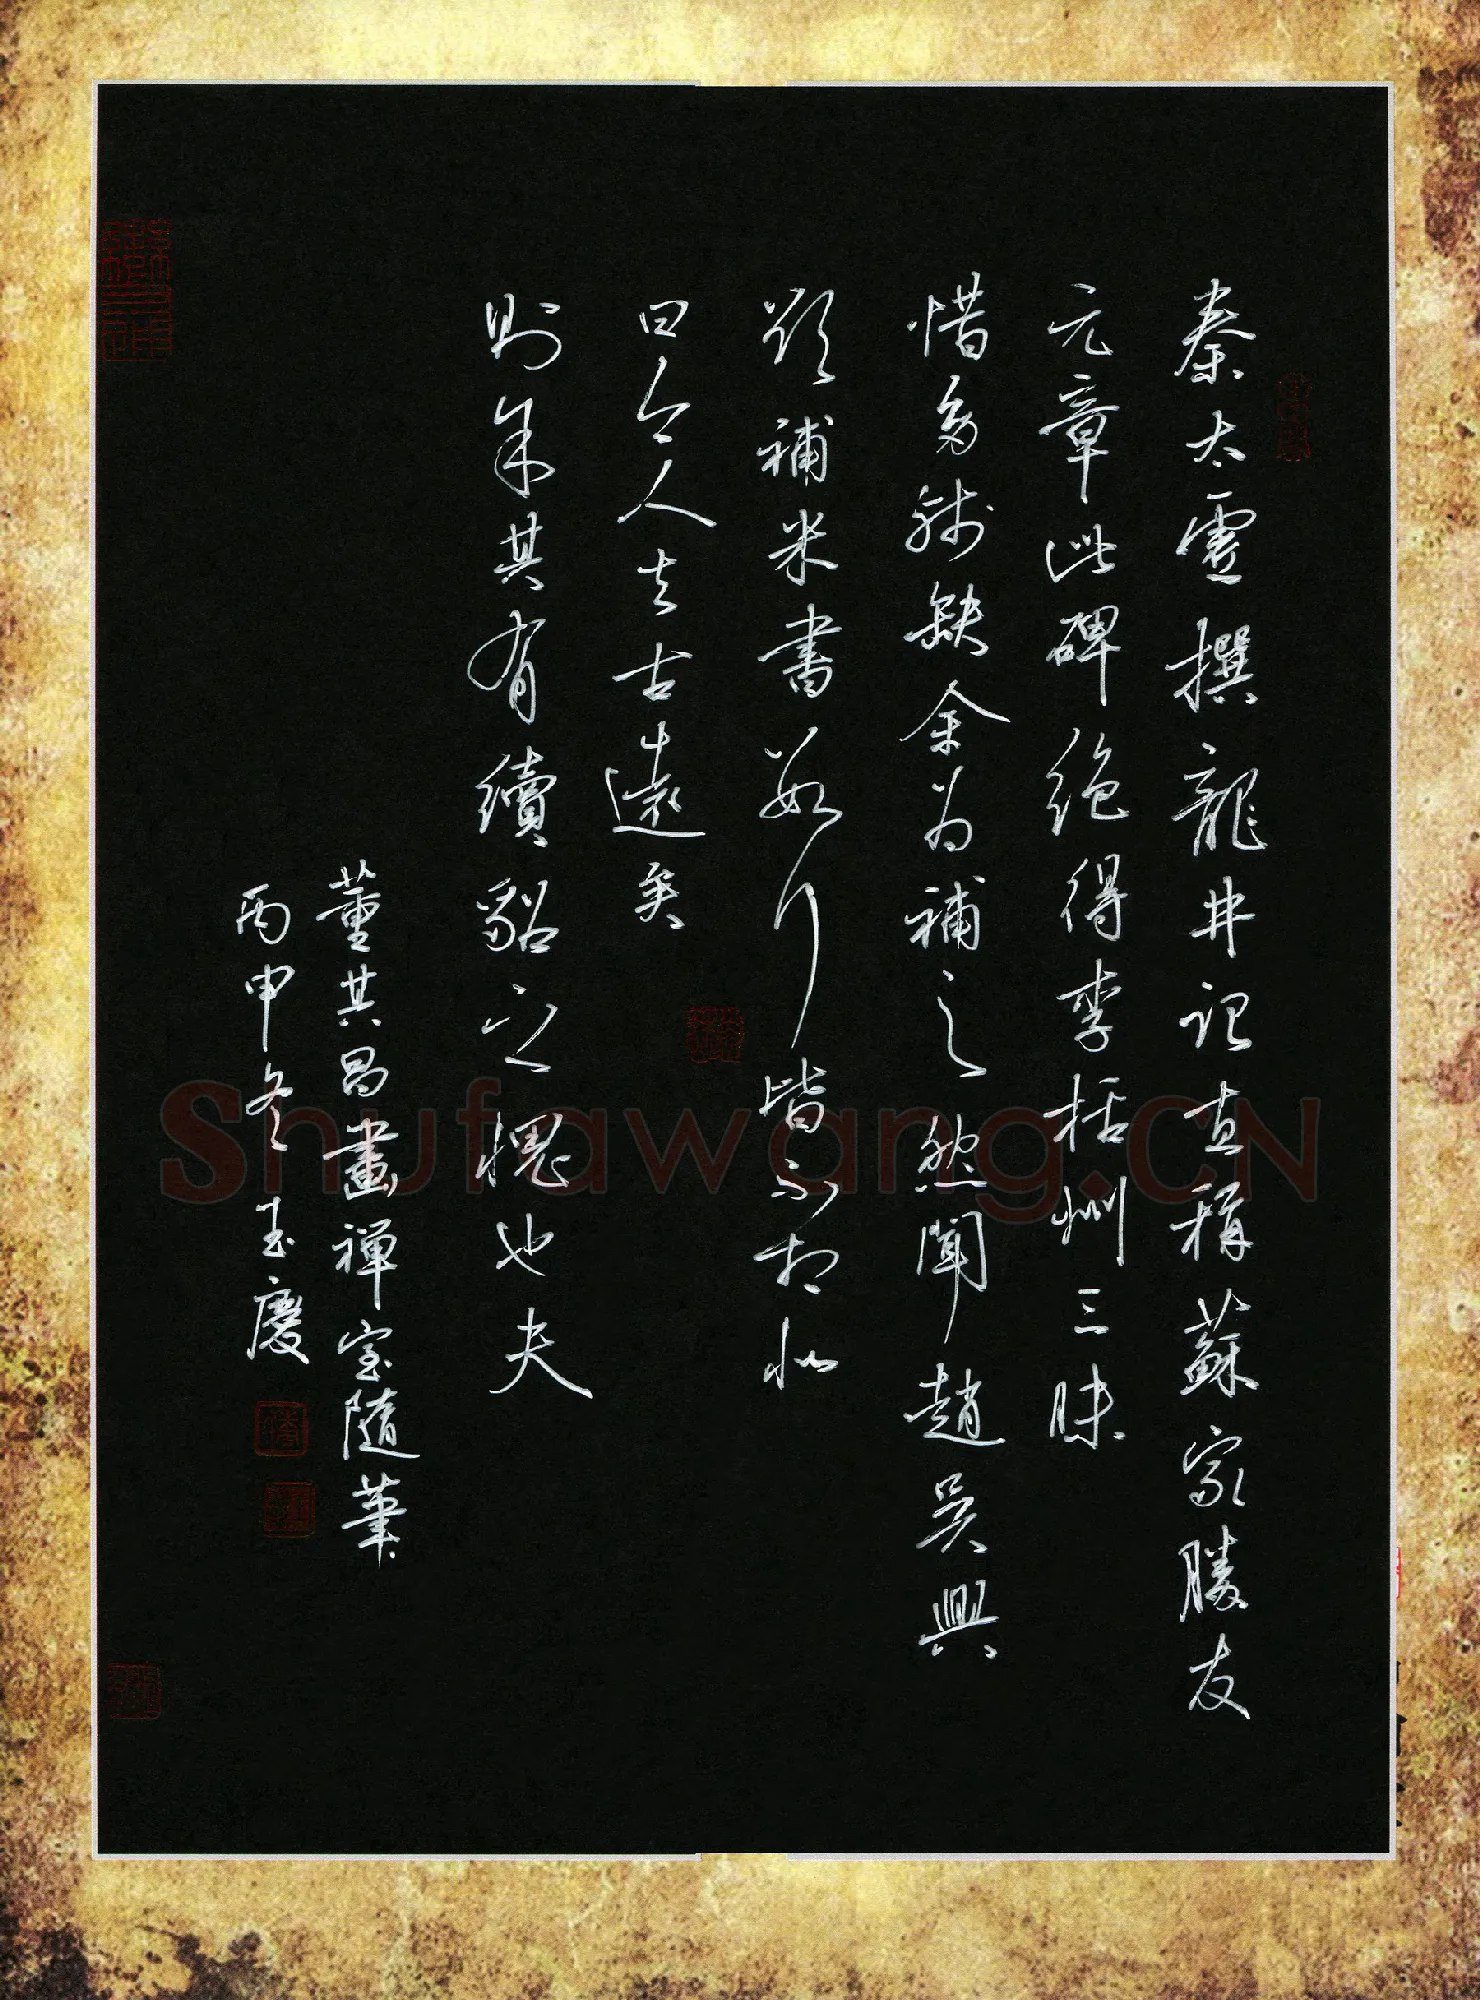 秦太虛撰龍井記直稱蘇家勝友
元章此碑絶得李括州三昧
惜多殘缺余為補之然聞趙吳興
欲補米書數行皆不相似
曰今人去古遠矣
則余其有續貂之愧也夫
董其昌畫禪室隨筆
丙申冬玉慶
Shufawang.CN